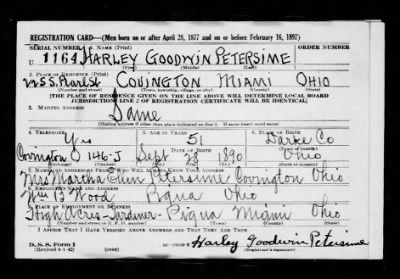 REGISTRATION CARD—(Men born on or after April 28, 1877 and on or before February 16, 1897)
SERIAL NUMBER 1. NAME (Print) ORDER NUMBER
U 1164 HARLEY GOODWIN PETERSIME
(First) (Middle) (Last)
2. PLACE OF RESIDENCE (Print)
S. Pearl St COVINGTON MIAMI OHIO
(Number and street) (Town, township, village, or city) (County) (State)
[THE PLACE OF RESIDENCE GIVEN ON THE LINE ABOVE WILL DETERMINE LOCAL BOARD
JURISDICTION; LINE 2 OF REGISTRATION CERTIFICATE WILL BE IDENTICAL]
3. MAILING ADDRESS
Same
[Mailing address if other than place indicated on line 2. If same insert word same]
4. TELEPHONE 5. AGE IN YEARS 6. PLACE OF BIRTH
Yes 51 Darke Co
DATE OF BIRTH
Covington O 146-J Sept 28 1890 Ohio
7. NAME AND ADDRESS OF PERSON WHO WILL ALWAYS KNOW YOUR ADDRESS
Mrs Martha Petersime Covington Ohio
8. EMPLOYER'S NAME AND ADDRESS
Wm B Wood Piqua Ohio
9. PLACE OF EMPLOYMENT OR BUSINESS
High Acres - Gardener - Piqua Miami Ohio
I AFFIRM THAT I HAVE VERIFIED ABOVE ANSWERS AND THAT THEY ARE TRUE.
D. S. S. Form 1
(Revised 4-1-42) Harley Goodwin Petersime
(Registrant's signature)